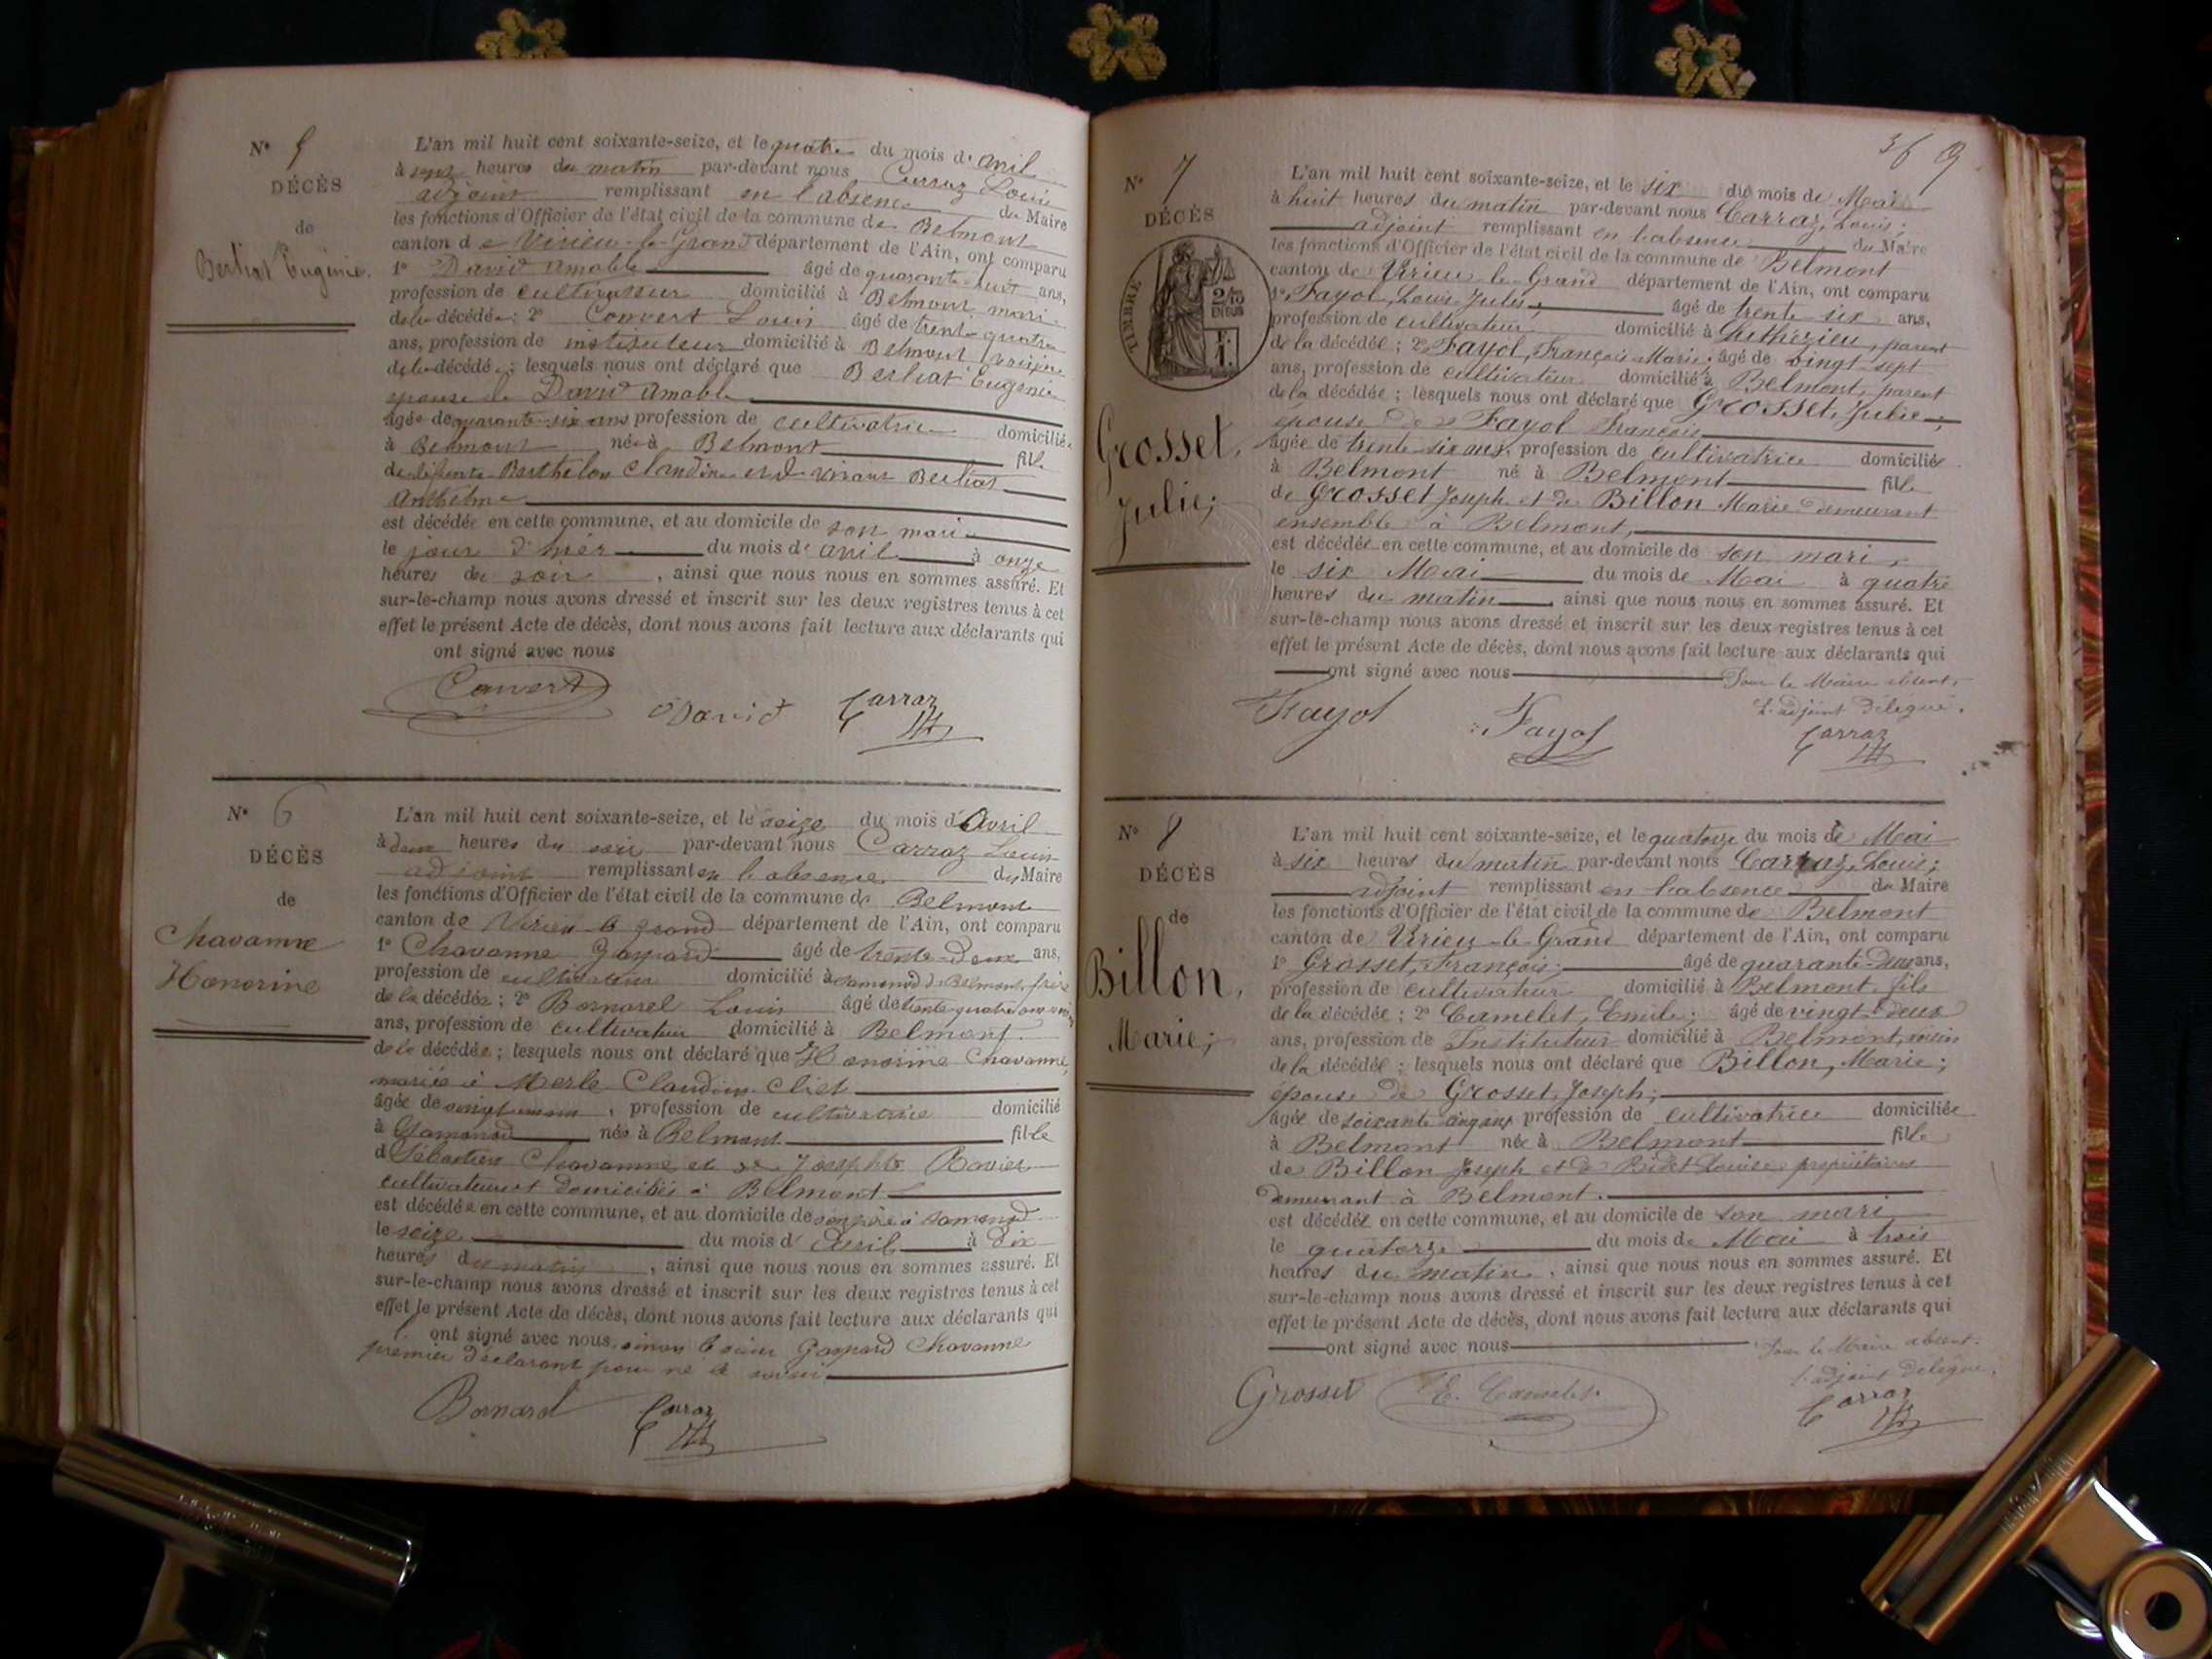 N° 5
DÉCÈS
de
Berliat Eugénie.
L'an mil huit cent soixante-seize, et le quatre du mois d'avril
à sept heures du matin par-devant nous Carraz Louis
adjoint remplissant en l'absence du Maire
les fonctions d'Officier de l'état civil de la commune de Belmont
canton de Virieu-le-Grand département de l'Ain, ont comparu
1° David Amable âgé de quarante-huit ans,
profession de cultivateur domicilié à Belmont mari
de la décédée; 2° Convert Louis âgé de trente-quatre
ans, profession de instituteur domicilié à Belmont
de la décédée; lesquels nous ont déclaré que Berliat Eugénie
épouse de David Amable
âgée de quarante-six ans profession de cultivatrice domiciliée
à Belmont née à Belmont fille
de défunte Berthelon Claudine et de vivant Berliat
Anthelme
est décédée en cette commune, et au domicile de son mari
le jour d'hier du mois d'avril à onze
heures du soir, ainsi que nous nous en sommes assuré. Et
sur-le-champ nous avons dressé et inscrit sur les deux registres tenus à cet
effet le présent Acte de décès, dont nous avons fait lecture aux déclarants qui
ont signé avec nous
Convert David Carraz
N° 6
DÉCÈS
de
Chavanne
Honorine
L'an mil huit cent soixante-seize, et le seize du mois d'Avril
à deux heures du soir par-devant nous Carraz Louis
adjoint remplissant en l'absence du Maire
les fonctions d'Officier de l'état civil de la commune de Belmont
canton de Virieu-le-grand département de l'Ain, ont comparu
1° Chavanne Gaspard âgé de trente-deux ans,
profession de cultivateur domicilié à Samonod de Belmont, frère
de la décédée; 2° Bornarel Louis âgé de trente-quatre ans
ans, profession de cultivateur domicilié à Belmont
de la décédée; lesquels nous ont déclaré que Honorine Chavanne,
mariée à Merle Claudin
âgée de, profession de cultivatrice domicilié
à Samonod née à Belmont fille
de Sébastien Chavanne et de Josephte
cultivateurs domiciliés à Belmont
est décédée en cette commune, et au domicile de son père à Samonod
le seize du mois d'Avril à dix
heures du matin, ainsi que nous nous en sommes assuré. Et
sur-le-champ nous avons dressé et inscrit sur les deux registres tenus à cet
effet le présent Acte de décès, dont nous avons fait lecture aux déclarants qui
ont signé avec nous, sinon le sieur Gaspard Chavanne
premier déclarant pour ne le savoir
Carraz
36 9
N° 7
DÉCÈS
TIMBRE
2/10
EN SUS
Grosset,
Julie;
L'an mil huit cent soixante-seize, et le six du mois de Mai
à huit heures du matin par-devant nous Carraz, Louis;
adjoint remplissant en l'absence du Maire
les fonctions d'Officier de l'état civil de la commune de Belmont
canton de Virieu-le-Grand département de l'Ain, ont comparu
1° Fayol, Louis Jules; âgé de trente six ans,
profession de cultivateur domicilié à Luthézieu, parent
de la décédée; 2° Fayol, François-Marie; âgé de vingt-sept
ans, profession de cultivateur domicilié à Belmont, parent
de la décédée; lesquels nous ont déclaré que Grosset, Julie;
épouse de Fayol François
âgée de trente-six ans, profession de cultivatrice domiciliée
à Belmont né à Belmont fille
de Grosset Joseph et de Billon Marie demeurant
ensemble à Belmont,
est décédée en cette commune, et au domicile de son mari,
le six Mai du mois de Mai à quatre
heures du matin, ainsi que nous nous en sommes assuré. Et
sur-le-champ nous avons dressé et inscrit sur les deux registres tenus à cet
effet le présent Acte de décès, dont nous avons fait lecture aux déclarants qui
ont signé avec nous Pour le Maire absent,
L'adjoint délégué.
Fayol Fayol Carraz
N° 8
DÉCÈS
de
Billon,
Marie;
L'an mil huit cent soixante-seize, et le quatorze du mois de Mai
à six heures du matin par-devant nous Carraz, Louis;
adjoint remplissant en l'absence du Maire
les fonctions d'Officier de l'état civil de la commune de Belmont
canton de Virieu-le-Grand département de l'Ain, ont comparu
1° Grosset, François; âgé de quarante-deux ans,
profession de cultivateur domicilié à Belmont, fils
de la décédée; 2° Camelet, Emile; âgé de vingt-deux
ans, profession de Instituteur domicilié à Belmont, voisin
de la décédée; lesquels nous ont déclaré que Billon, Marie;
épouse de Grosset, Joseph;
âgée de soixante cinq ans profession de cultivatrice domiciliée
à Belmont née à Belmont fille
de Billon Joseph et de Louise propriétaires
demeurant à Belmont.
est décédée en cette commune, et au domicile de son mari
le quatorze du mois de Mai à trois
heures du matin, ainsi que nous nous en sommes assuré. Et
sur-le-champ nous avons dressé et inscrit sur les deux registres tenus à cet
effet le présent Acte de décès, dont nous avons fait lecture aux déclarants qui
ont signé avec nous Pour le Maire absent.
l'adjoint délégué,
Grosset E. Camelet Carraz